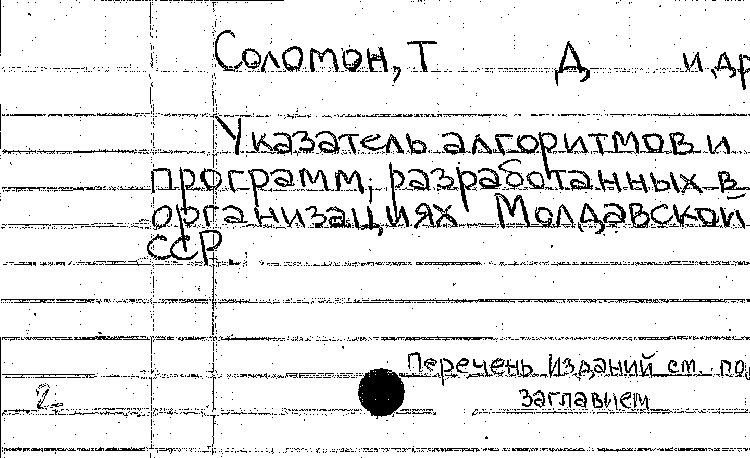 Соломон, Т Д и др
Указатель алгоритмов и
программ, разработанных в
организациях Молдавской
ССР.
Перечень изданий см. под
заглавием
2-